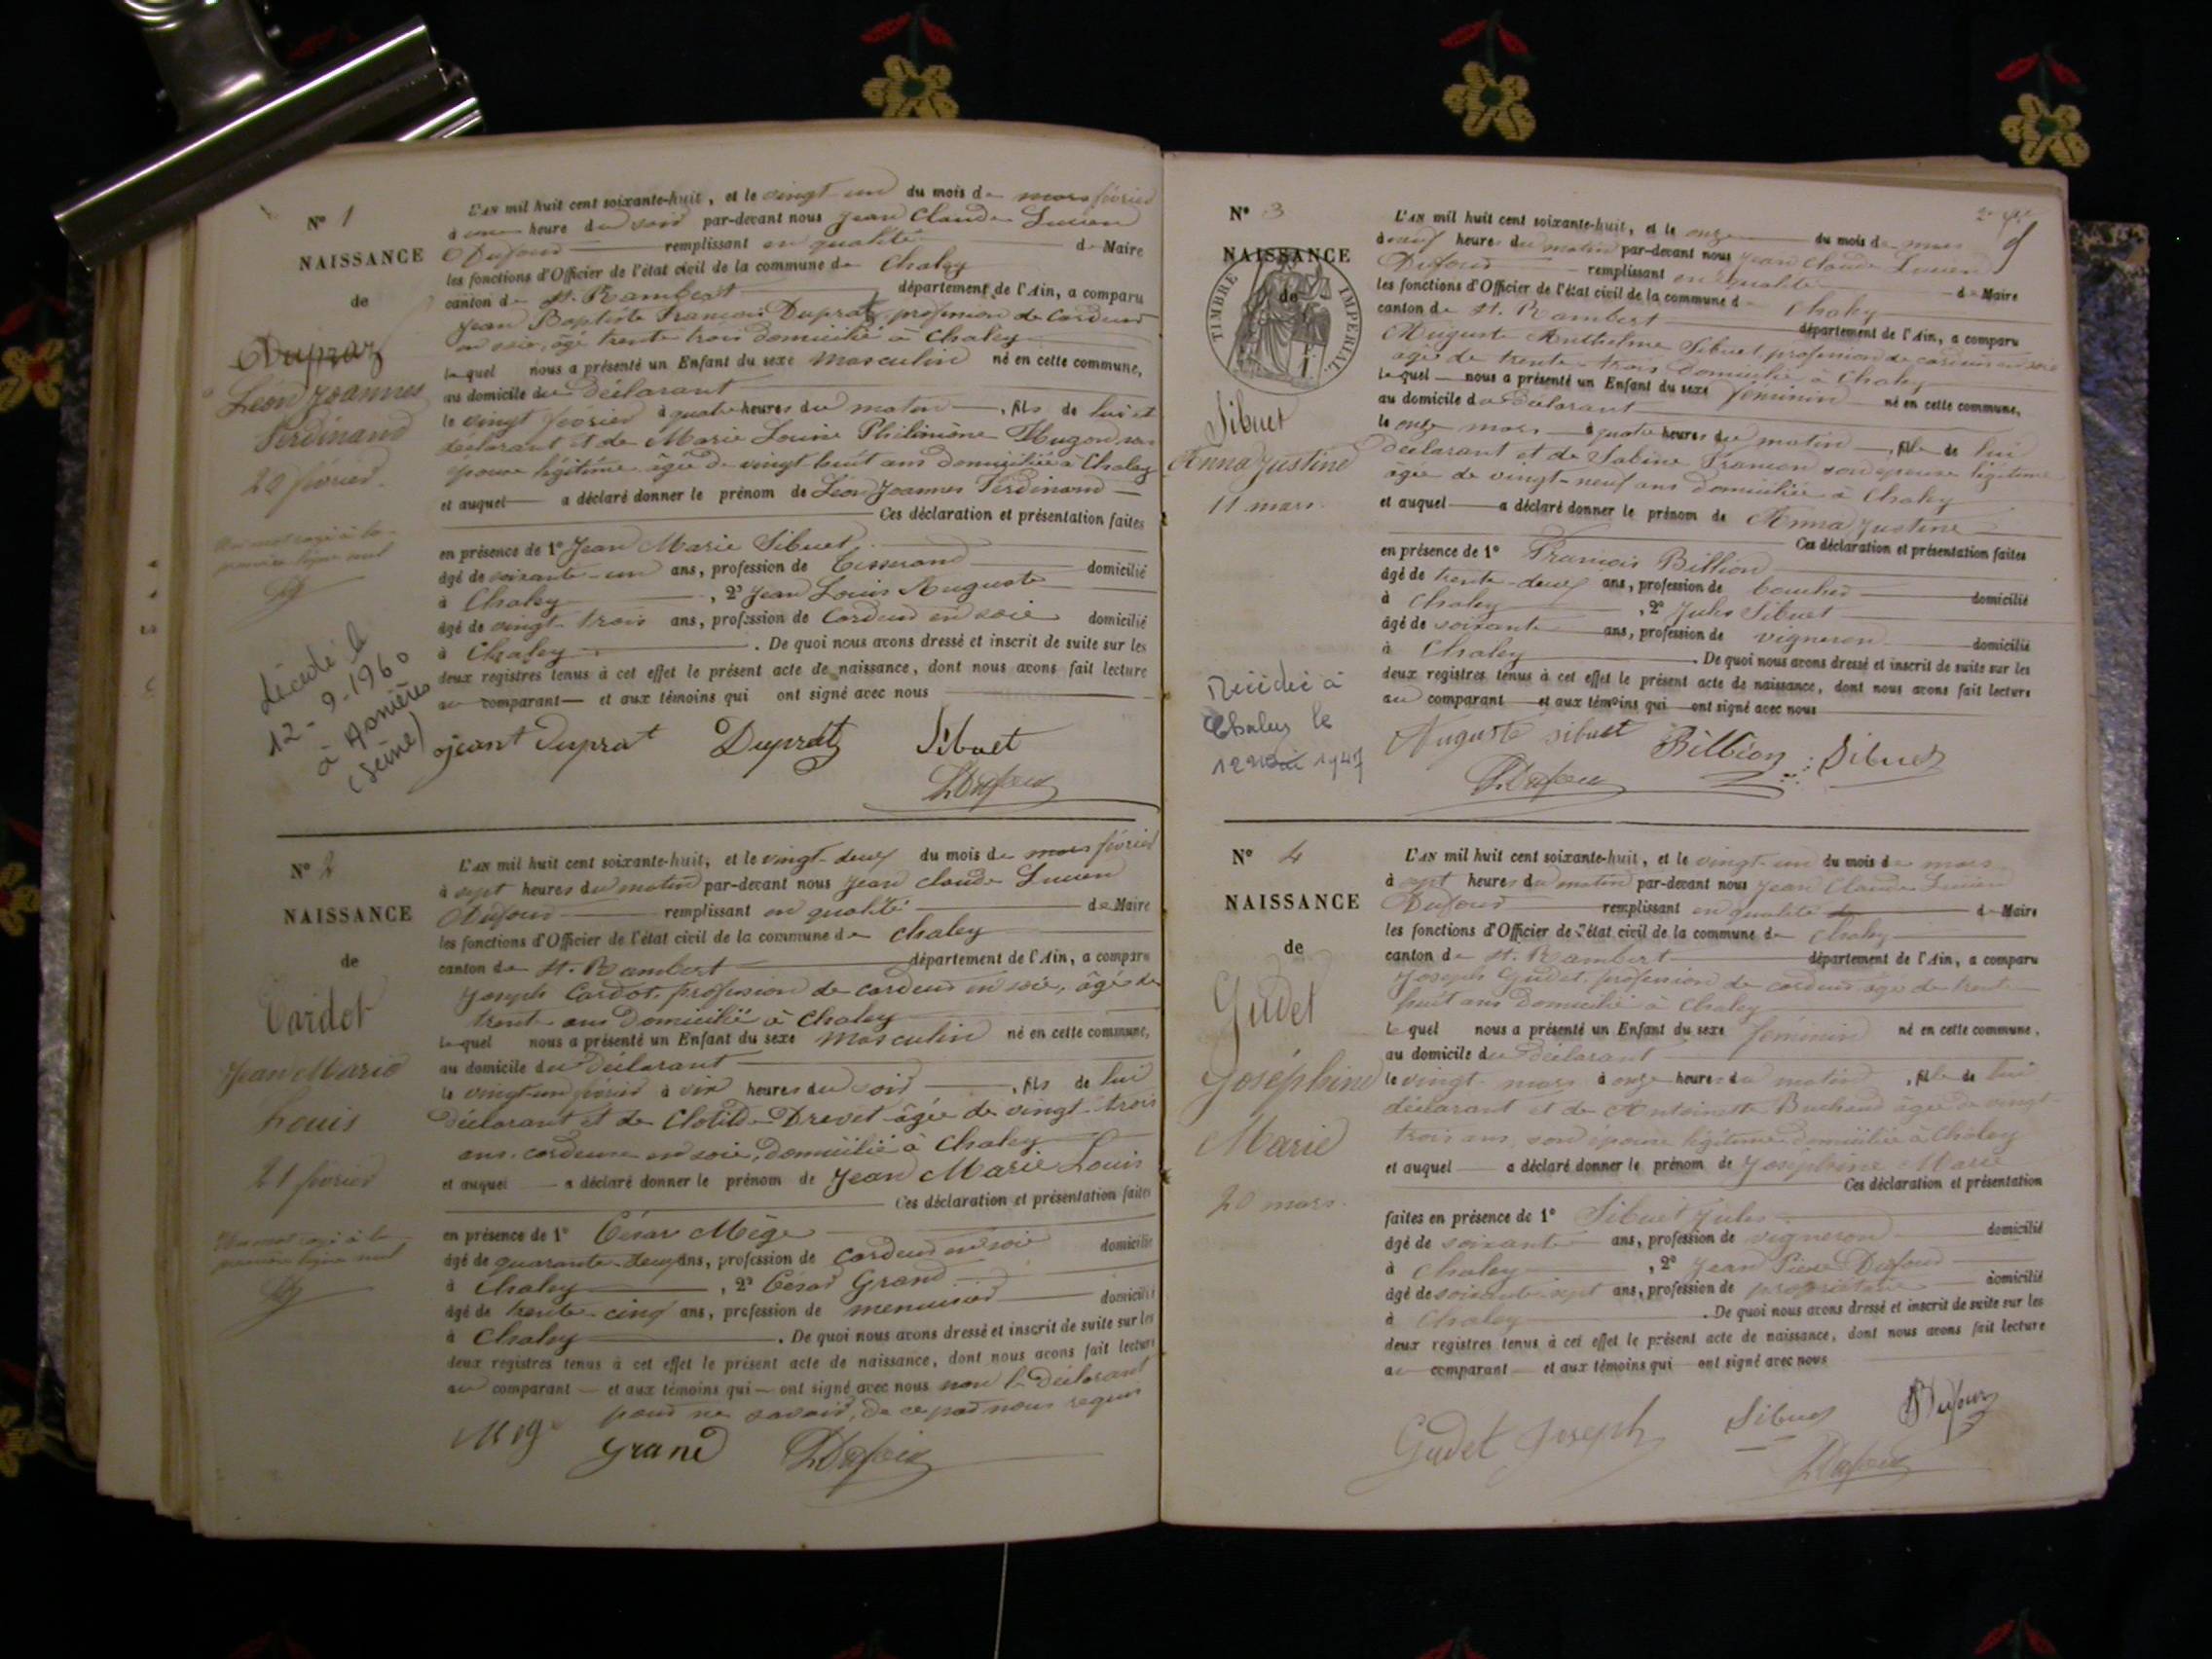 N° 1
NAISSANCE
de
Dupraz
Léon Joannes
Ferdinand
20 février.
Un mot rayé à la
première ligne nul
décédé le
12-9-1960
à Asnières
(Seine)
L'AN mil huit cent soixante-huit, et le vingt-un du mois de mars février
à une heure du soir par-devant nous Jean Claude Lucien
Dufour remplissant en qualité de Maire
les fonctions d'Officier de l'état civil de la commune de Chaley
canton de St. Rambert département de l'Ain, a comparu
Jean Baptiste François Duprat, profession de Cardeur
en soie, âgé trente trois domicilié à Chaley
lequel nous a présenté un Enfant du sexe masculin né en cette commune,
au domicile du déclarant
le vingt février à quatre heures du matin, fils de lui et
déclarant et de Marie Louise Philimène Hugon, son
épouse légitime âgée de vingt huit ans domiciliée à Chaley
et auquel a déclaré donner le prénom de Léon Joannes Ferdinand
Ces déclaration et présentation faites
en présence de 1° Jean Marie Sibuet
âgé de soixante-un ans, profession de Tisserand domicilié
à Chaley, 2° Jean Louis Auguste
âgé de vingt-trois ans, profession de Cardeur en soie domicilié
à Chaley. De quoi nous avons dressé et inscrit de suite sur les
deux registres tenus à cet effet le présent acte de naissance, dont nous avons fait lecture
au comparant et aux témoins qui ont signé avec nous
jean Duprat Dupratz Sibuet
LDufour
N° 2
NAISSANCE
de
Cardot
Jean Marie
Louis
21 février
Un mot rayé à la
première ligne nul
L'AN mil huit cent soixante-huit, et le vingt-deux du mois de mars février
à sept heures du matin par-devant nous Jean Claude Lucien
Dufour remplissant en qualité de Maire
les fonctions d'Officier de l'état civil de la commune de Chaley
canton de St. Rambert département de l'Ain, a comparu
Joseph Cardot, profession de cardeur en soie, âgé de
trente ans domicilié à Chaley
lequel nous a présenté un Enfant du sexe masculin né en cette commune,
au domicile du déclarant
le vingt-un février à six heures du soir, fils de lui
déclarant et de Clotilde Drevet âgée de vingt-trois
ans, cardeuse en soie, domicilié à Chaley
et auquel a déclaré donner le prénom de Jean Marie Louis
Ces déclaration et présentation faites
en présence de 1° César Mège
âgé de quarante-deux ans, profession de Cardeur en soie domicilié
à Chaley, 2° César Grand
âgé de trente-cinq ans, profession de menuisier domicilié
à Chaley. De quoi nous avons dressé et inscrit de suite sur les
deux registres tenus à cet effet le présent acte de naissance, dont nous avons fait lecture
au comparant et aux témoins qui ont signé avec nous non le déclarant
pour ne savoir, de ce par nous requis
Mège Grand LDufour
N° 3
NAISSANCE
de
TIMBRE IMPERIAL
Sibuet
Anna Justine
11 mars.
Décédée à
Chaley le
12 mai 1947
L'AN mil huit cent soixante-huit, et le onze du mois de mars
à neuf heures du matin par-devant nous Jean Claude Lucien
Dufour remplissant en qualité de Maire
les fonctions d'Officier de l'état civil de la commune de Chaley
canton de St. Rambert département de l'Ain, a comparu
Auguste Anthelme Sibuet, profession de cardeur en soie
âgé de trente-trois domicilié à Chaley
lequel nous a présenté un Enfant du sexe féminin né en cette commune,
au domicile du déclarant
le onze mars à quatre heures du matin, fille de lui
déclarant et de Sabine Françon son épouse légitime
âgée de vingt-neuf ans domiciliée à Chaley
et auquel a déclaré donner le prénom de Anna Justine
Ces déclaration et présentation faites
en présence de 1° François Billion
âgé de trente-deux ans, profession de boucher domicilié
à Chaley, 2° Jules Sibuet
âgé de soixante ans, profession de vigneron domicilié
à Chaley. De quoi nous avons dressé et inscrit de suite sur les
deux registres tenus à cet effet le présent acte de naissance, dont nous avons fait lecture
au comparant et aux témoins qui ont signé avec nous
Auguste Sibuet Billion Sibuet
LDufour
N° 4
NAISSANCE
de
Gudet
Joséphine
Marie
20 mars.
L'AN mil huit cent soixante-huit, et le vingt-un du mois de mars
à sept heures du matin par-devant nous Jean Claude Lucien
Dufour remplissant en qualité de Maire
les fonctions d'Officier de l'état civil de la commune de Chaley
canton de St. Rambert département de l'Ain, a comparu
Joseph Gudet, profession de cardeur âgé de trente
huit ans domicilié à Chaley
lequel nous a présenté un Enfant du sexe féminin né en cette commune,
au domicile du déclarant
le vingt mars à onze heures du matin, fille de lui
déclarant et de Antoinette Buchaud âgée de vingt
trois ans, son épouse légitime domiciliée à Chaley
et auquel a déclaré donner le prénom de Joséphine Marie
Ces déclaration et présentation
faites en présence de 1° Sibuet Jules
âgé de soixante ans, profession de vigneron domicilié
à Chaley, 2° Jean Pierre Dufour
âgé de soixante-sept ans, profession de propriétaire domicilié
à Chaley. De quoi nous avons dressé et inscrit de suite sur les
deux registres tenus à cet effet le présent acte de naissance, dont nous avons fait lecture
au comparant et aux témoins qui ont signé avec nous
Gudet Joseph Sibuet Dufour
LDufour